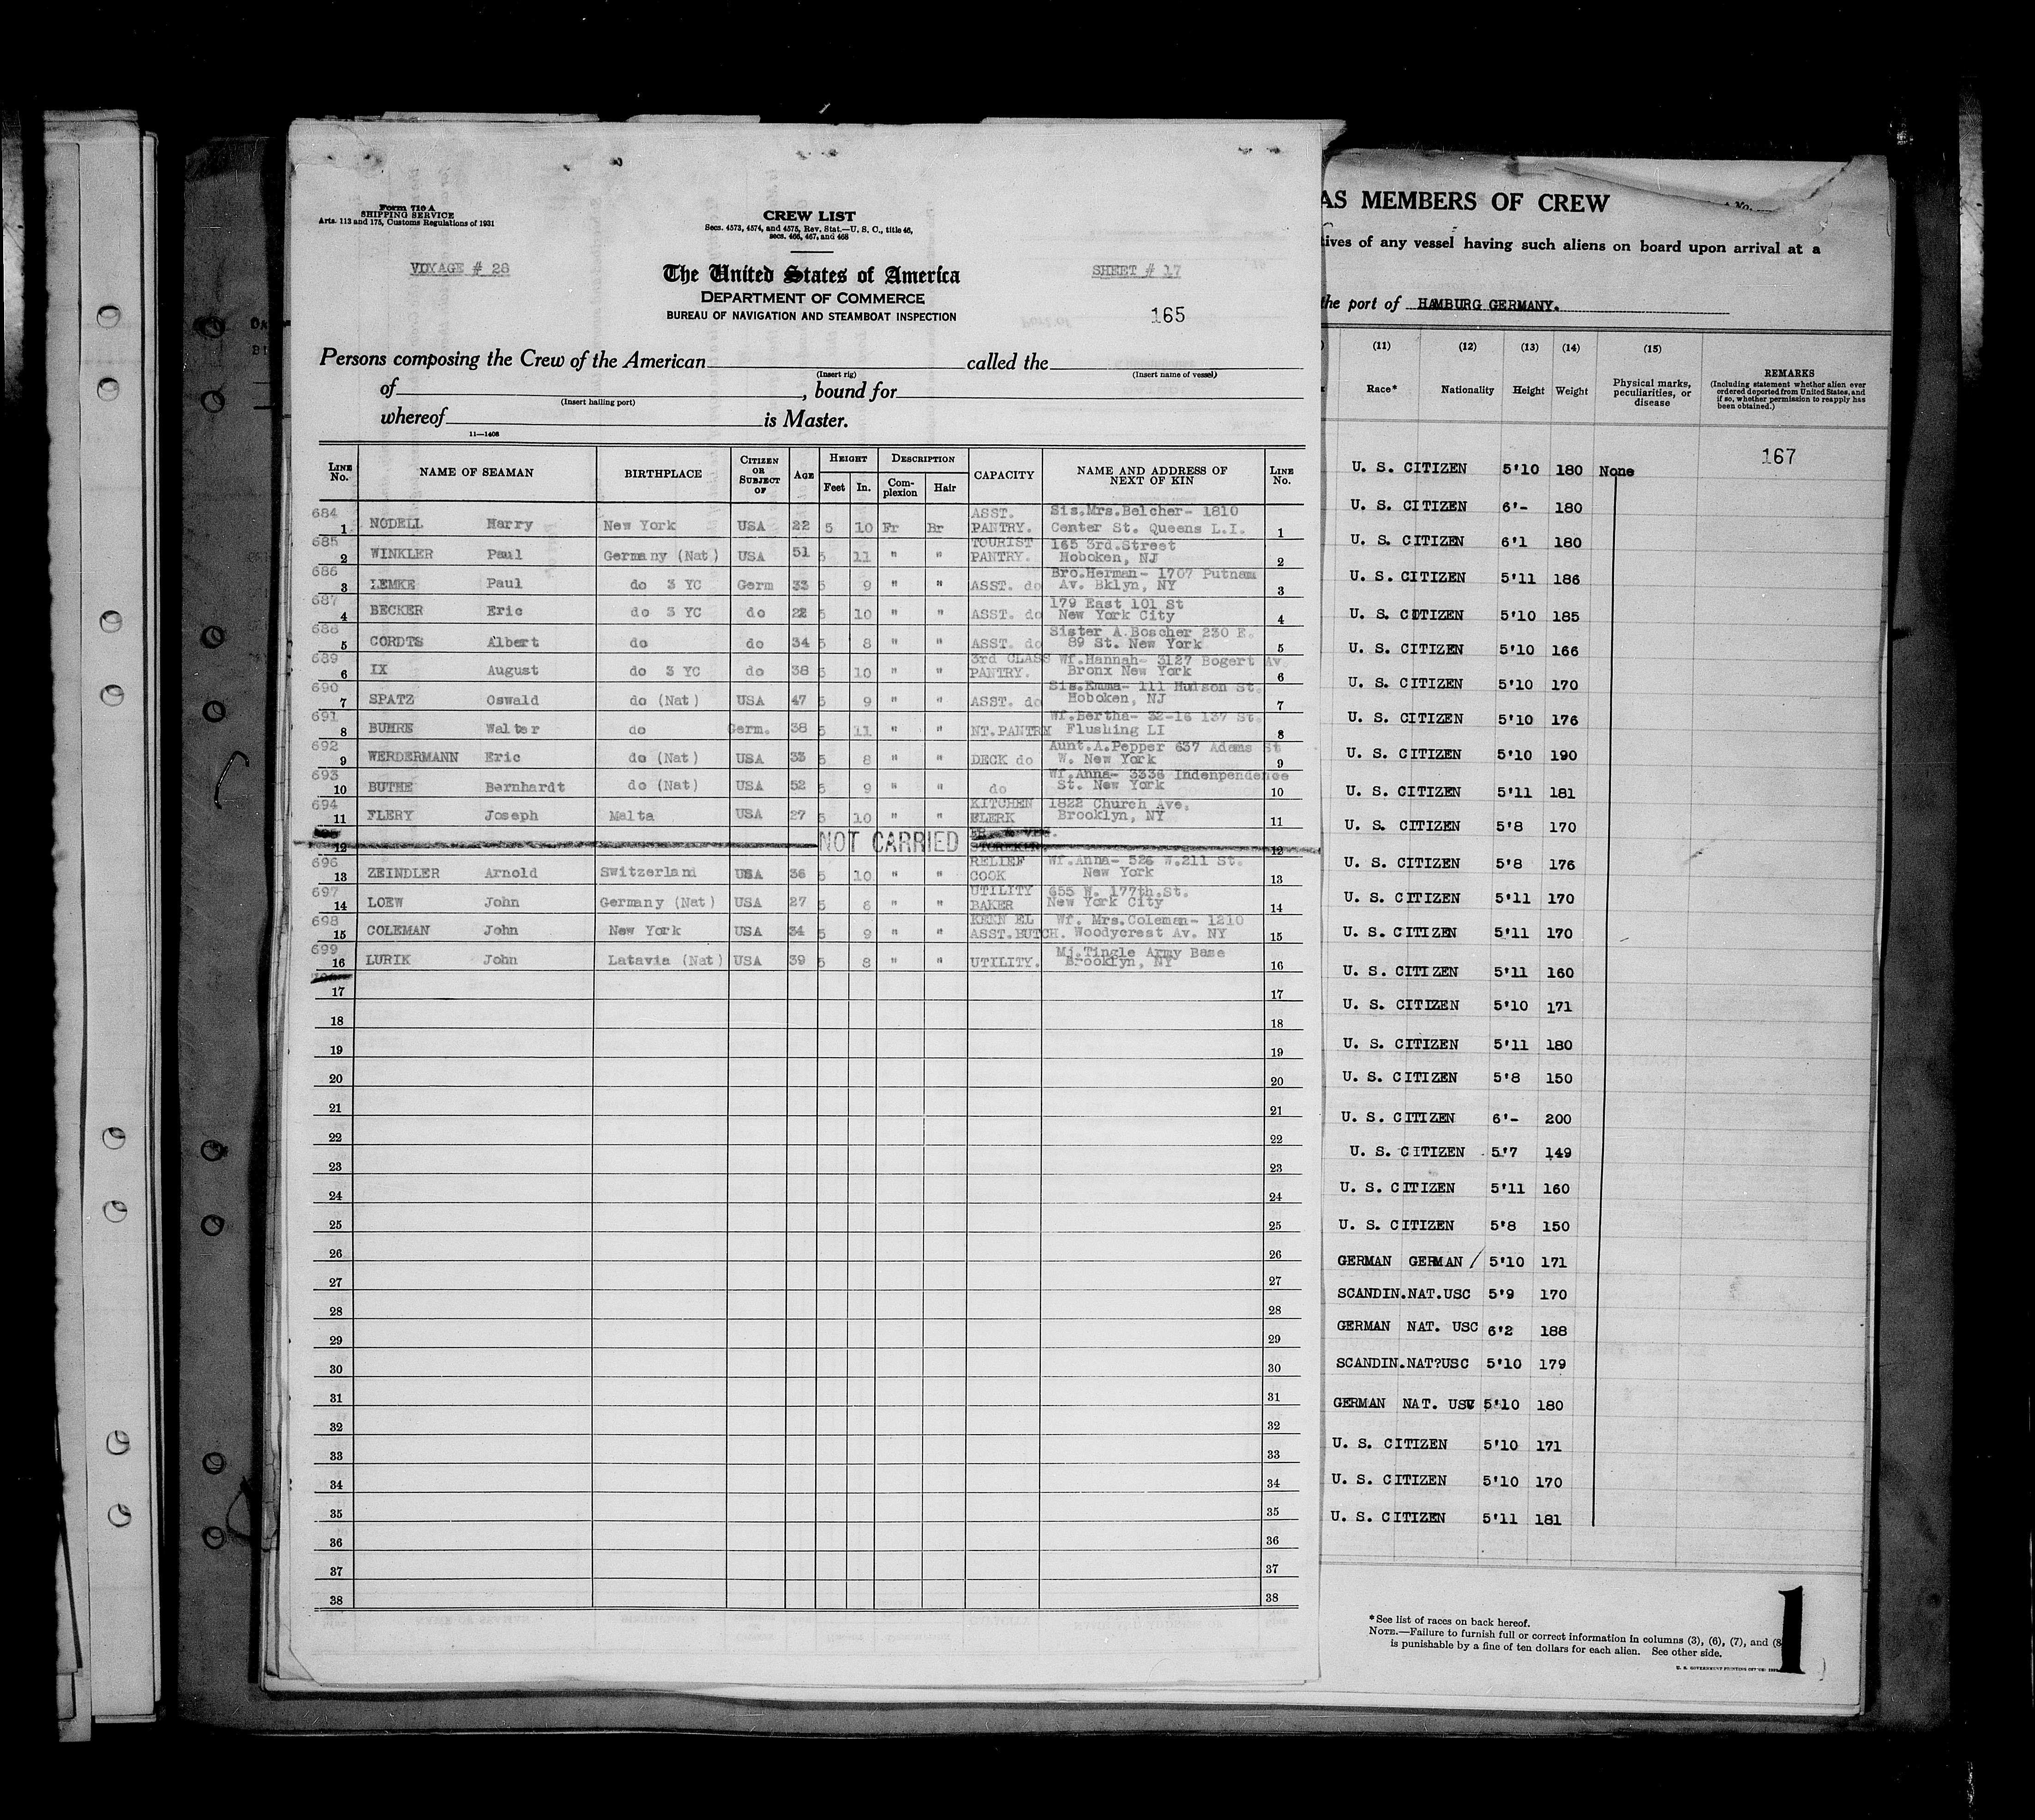 Form 710 A
SHIPPING SERVICE
Arts. 113 and 175, Customs Regulations of 1931
CREW LIST
Secs. 4573, 4574, and 4575, Rev. Stat.—U. S. C., title 46,
secs. 466, 467, and 468
VOYAGE # 28
The United States of America
SHEET # 17
DEPARTMENT OF COMMERCE
BUREAU OF NAVIGATION AND STEAMBOAT INSPECTION
165
Persons composing the Crew of the American called the
(Insert rig) (Insert name of vessel)
of , bound for
(Insert hailing port)
whereof is Master.
11—1408
LINE No. NAME OF SEAMAN BIRTHPLACE CITIZEN OR SUBJECT OF AGE HEIGHT Feet In. DESCRIPTION Complexion Hair CAPACITY NAME AND ADDRESS OF NEXT OF KIN LINE No.
684 ASST. Sis.Mrs.Belcher- 1810
1 NODELL Harry New York USA 22 5 10 Fr Br PANTRY. Center St. Queens L.I. 1
685 TOURIST 165 3rd.Street
2 WINKLER Paul Germany (Nat) USA 51 5 11 " " PANTRY. Hoboken, NJ 2
686 Bro.Herman- 1707 Putnam
3 LEMKE Paul do 3 YC Germ 33 5 9 " " ASST. do Av. Bklyn, NY 3
687 179 East 101 St
4 BECKER Eric do 3 YC do 22 5 10 " " ASST. do New York City 4
688 Sister A.Boscher 230 E.
5 CORDTS Albert do do 34 5 8 " " ASST. do 89 St. New York 5
689 3rd CLASS Wf.Hannah- 3127 Bogert Av
6 IX August do 3 YC do 38 5 10 " " PANTRY. Bronx New York 6
690 Sis.Emma- 111 Hudson St.
7 SPATZ Oswald do (Nat) USA 47 5 9 " " ASST. do Hoboken, NJ 7
691 Wf.Bertha- 32-16 137 St.
8 BUHRE Walter do Germ. 38 5 11 " " NT.PANTRY Flushing LI 8
692 Aunt.A.Pepper 637 Adams St
9 WERDERMANN Eric do (Nat) USA 33 5 8 " " DECK do W. New York 9
693 Wf.Anna- 3336 Indenpendence
10 BUTHE Bernhardt do (Nat) USA 52 5 9 " " do St. New York 10
694 KITCHEN 1822 Church Ave.
11 FLERY Joseph Malta USA 27 5 10 " " ELERK Brooklyn, NY 11
12 NOT CARRIED 12
696 RELIEF Wf.Anna- 526 W.211 St.
13 ZEINDLER Arnold Switzerland USA 36 5 10 " " COOK New York 13
697 UTILITY 655 W. 177th.St.
14 LOEW John Germany (Nat) USA 27 5 8 " " BAKER New York City 14
698 KENN EL Wf. Mrs.Coleman- 1210
15 COLEMAN John New York USA 34 5 9 " " ASST.BUTCH. Woodycrest Av. NY 15
699 Mj.Tingle Army Base
16 LURIK John Latavia (Nat) USA 39 5 8 " " UTILITY. Brooklyn, NY 16
17 17
18 18
19 19
20 20
21 21
22 22
23 23
24 24
25 25
26 26
27 27
28 28
29 29
30 30
31 31
32 32
33 33
34 34
35 35
36 36
37 37
38 38
AS MEMBERS OF CREW
tives of any vessel having such aliens on board upon arrival at a
the port of HAMBURG GERMANY.
(11) (12) (13) (14) (15)
Race* Nationality Height Weight Physical marks, peculiarities, or disease
REMARKS
(Including statement whether alien ever
ordered deported from United States, and
if so, whether permission to reapply has
been obtained.)
167
U. S. CITIZEN 5'10 180 None
U. S. CITIZEN 6'- 180
U. S. CITIZEN 6'1 180
U. S. CITIZEN 5'11 186
U. S. CITIZEN 5'10 185
U. S. CITIZEN 5'10 166
U. S. CITIZEN 5'10 170
U. S. CITIZEN 5'10 176
U. S. CITIZEN 5'10 190
U. S. CITIZEN 5'11 181
U. S. CITIZEN 5'8 170
U. S. CITIZEN 5'8 176
U. S. CITIZEN 5'11 170
U. S. CITIZEN 5'11 170
U. S. CITIZEN 5'11 160
U. S. CITIZEN 5'10 171
U. S. CITIZEN 5'11 180
U. S. CITIZEN 5'8 150
U. S. CITIZEN 6'- 200
U. S. CITIZEN 5'7 149
U. S. CITIZEN 5'11 160
U. S. CITIZEN 5'8 150
GERMAN GERMAN / 5'10 171
SCANDIN.NAT.USC 5'9 170
GERMAN NAT. USC 6'2 188
SCANDIN.NAT?USC 5'10 179
GERMAN NAT. USC 5'10 180
U. S. CITIZEN 5'10 171
U. S. CITIZEN 5'10 170
U. S. CITIZEN 5'11 181
*See list of races on back hereof.
NOTE.—Failure to furnish full or correct information in columns (3), (6), (7), and (8
is punishable by a fine of ten dollars for each alien. See other side.
U. S. GOVERNMENT PRINTING OFFICE
1